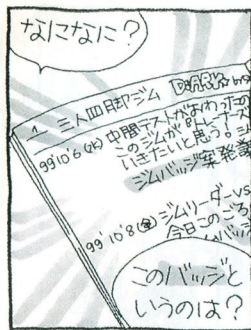 なになに？
三人四脚ジム DiARY
99'10'6(水) 中間テストがおわった
このジムが
いきたいと思う。
ジムバッジ案発
99'10'8(金) ジムリーダーvs
今日このごろ
このバッジと
いうのは？